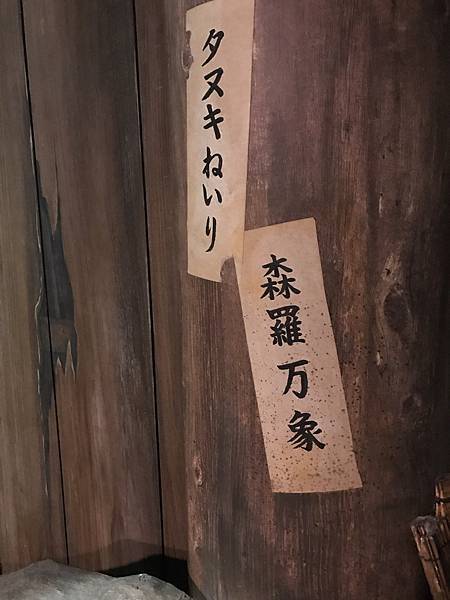 タヌキねいり
森羅万象